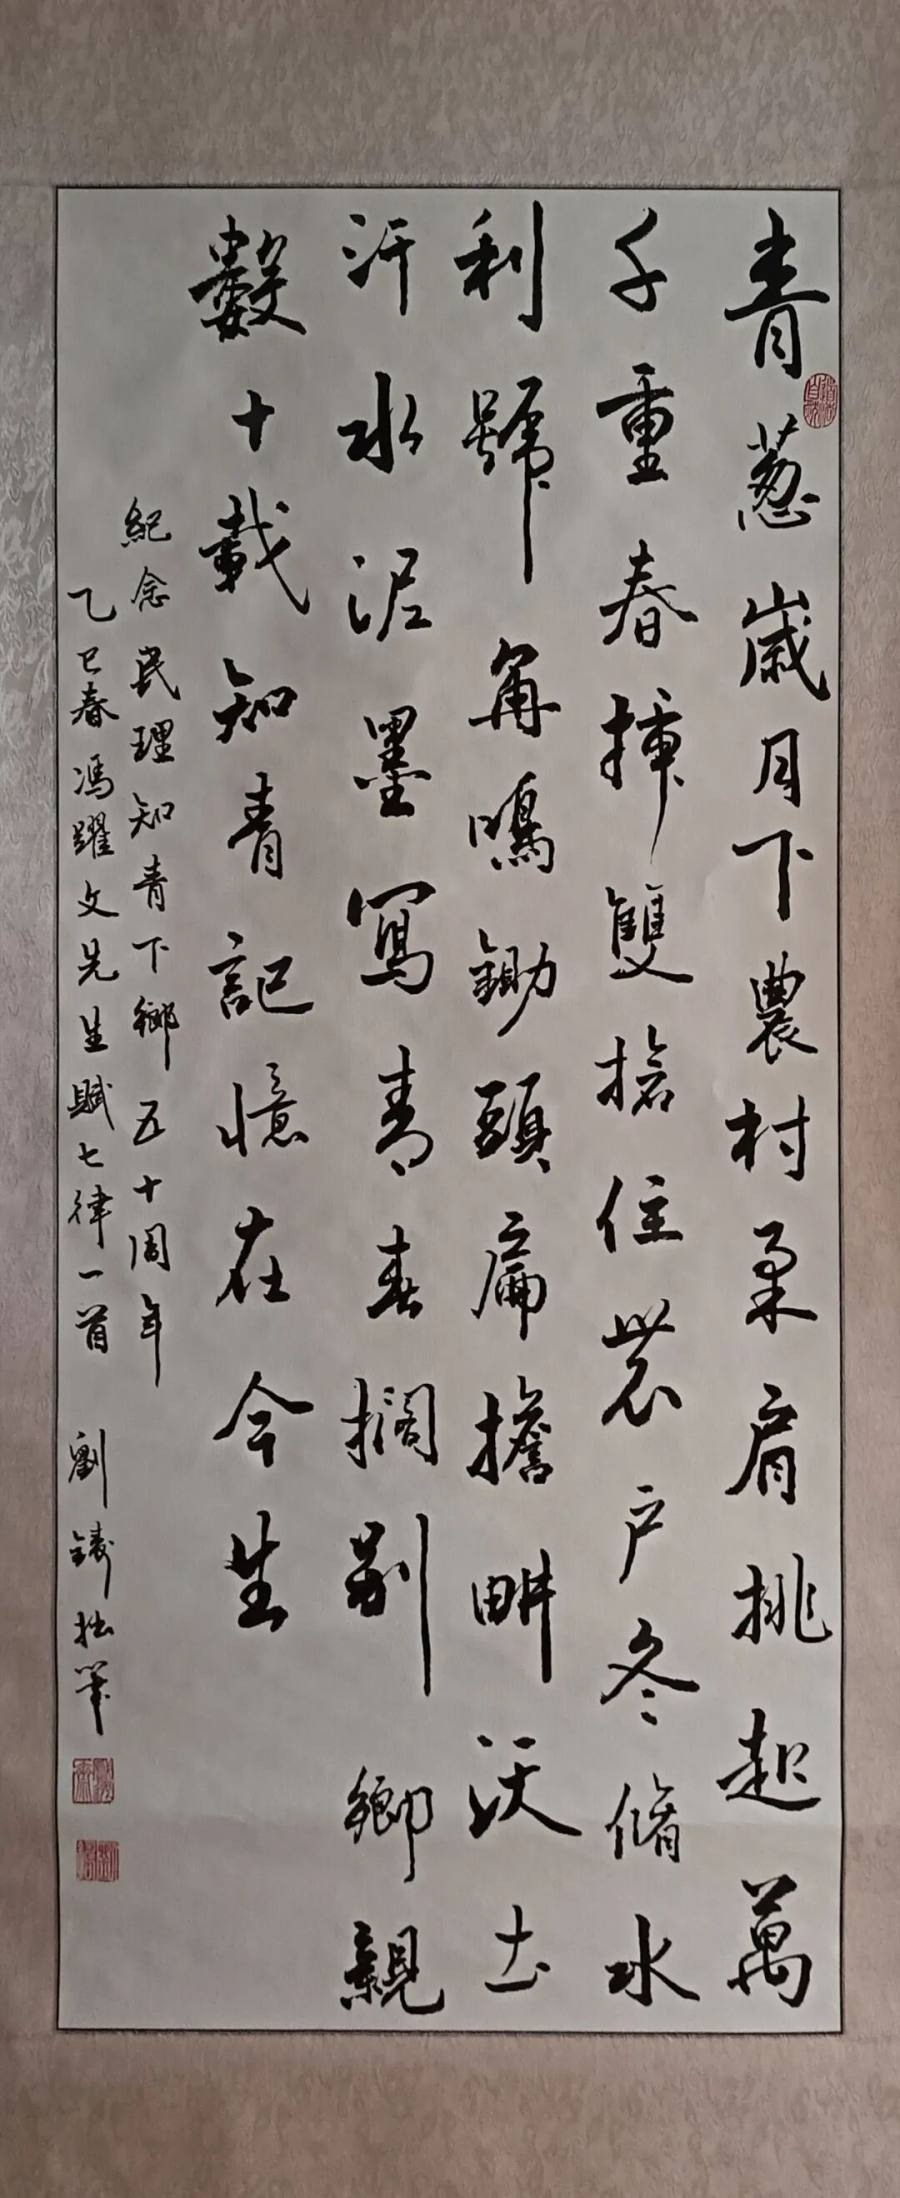 青葱歲月下農村柔肩挑起萬
千重春插雙搶住農户冬脩水
利號角鳴鋤頭扁擔畊沃土
汗水泥墨寫青春擱別鄉親
數十載知青記憶在今生
紀念民理知青下鄉五十周年
乙巳春馮躍文先生賦七律一首 劉鑄拙筆